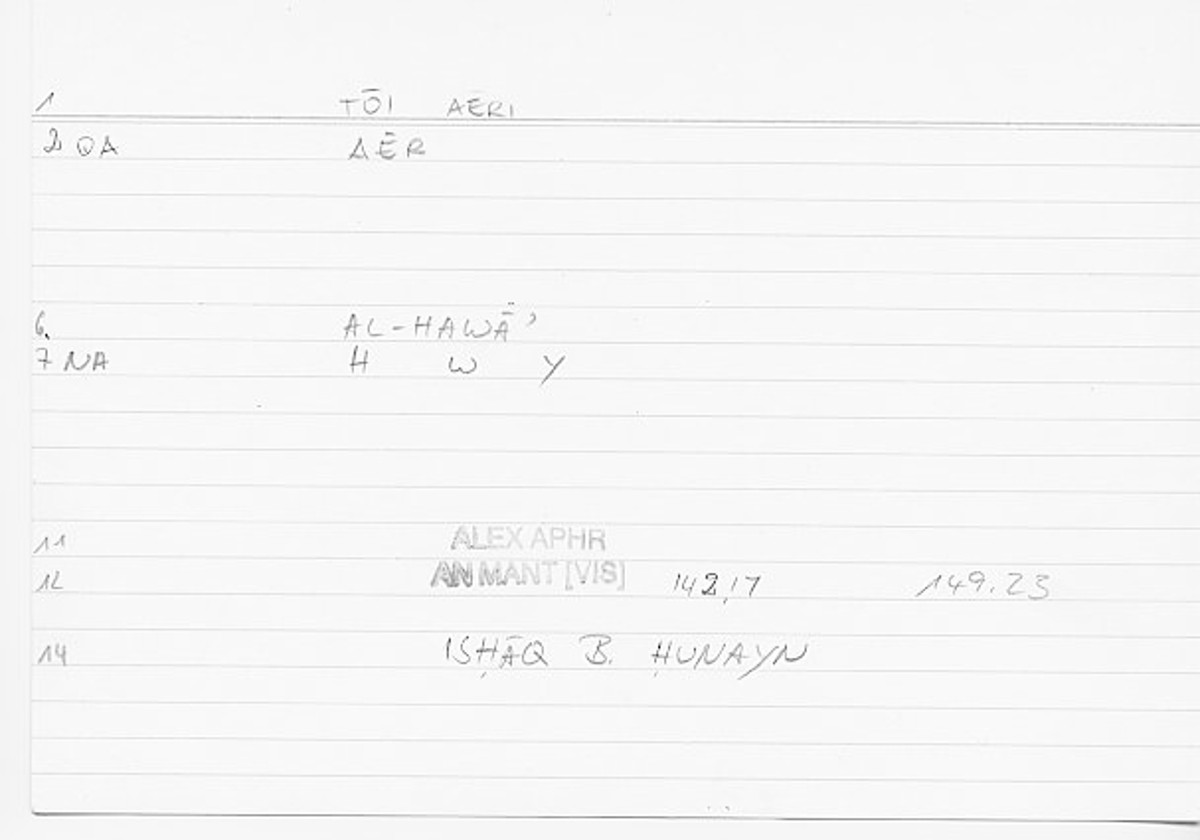 1 TŌI AERI
2 QA AĒR
6. AL-HAWĀʾ
7 NA H W Y
11 ALEX APHR
12 AN MANT [VIS] 142,17 149.23
14 ISḤĀQ B. ḤUNAYN